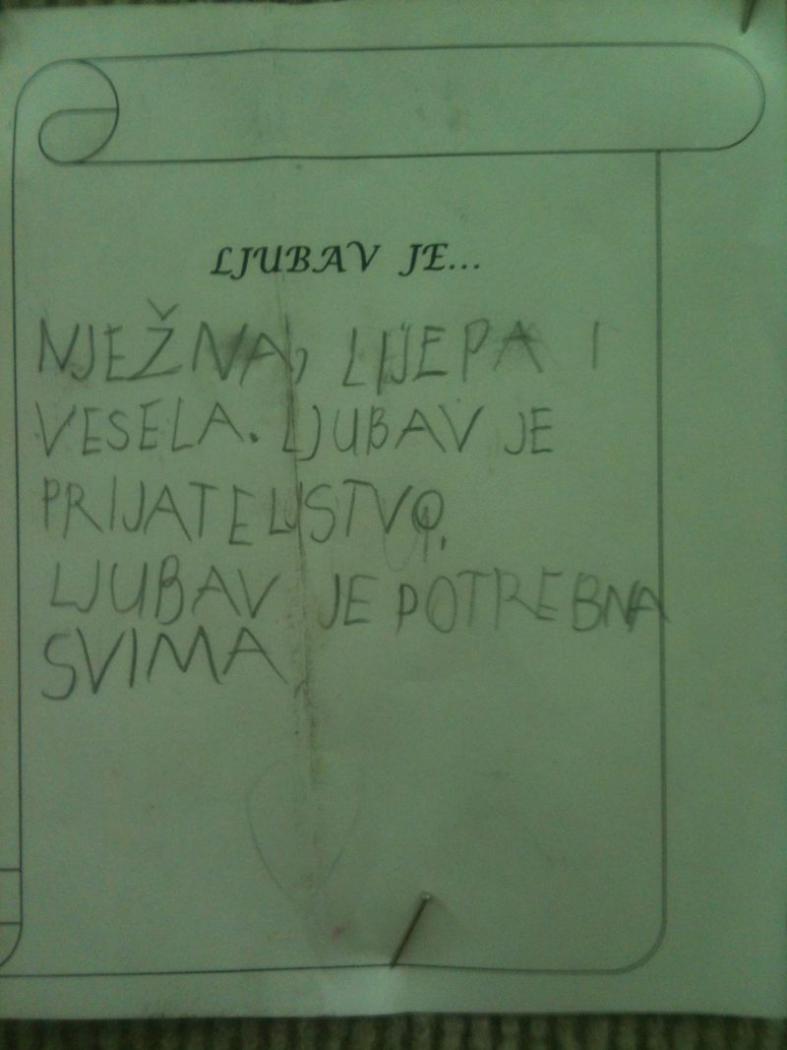 LJUBAV JE...
NJEŽNA, LIJEPA I
VESELA. LJUBAV JE
PRIJATELJSTVO.
LJUBAV JE POTREBNA
SVIMA.